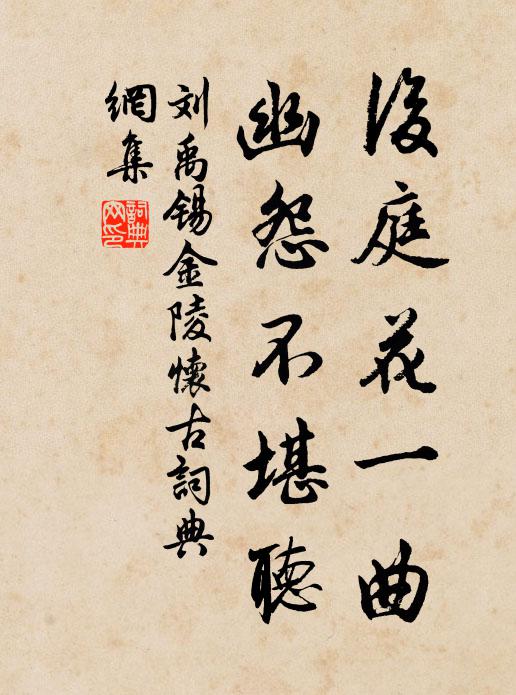 後庭花一曲
幽怨不堪聽
刘禹锡金陵懷古詞典
網集
詞典
网印